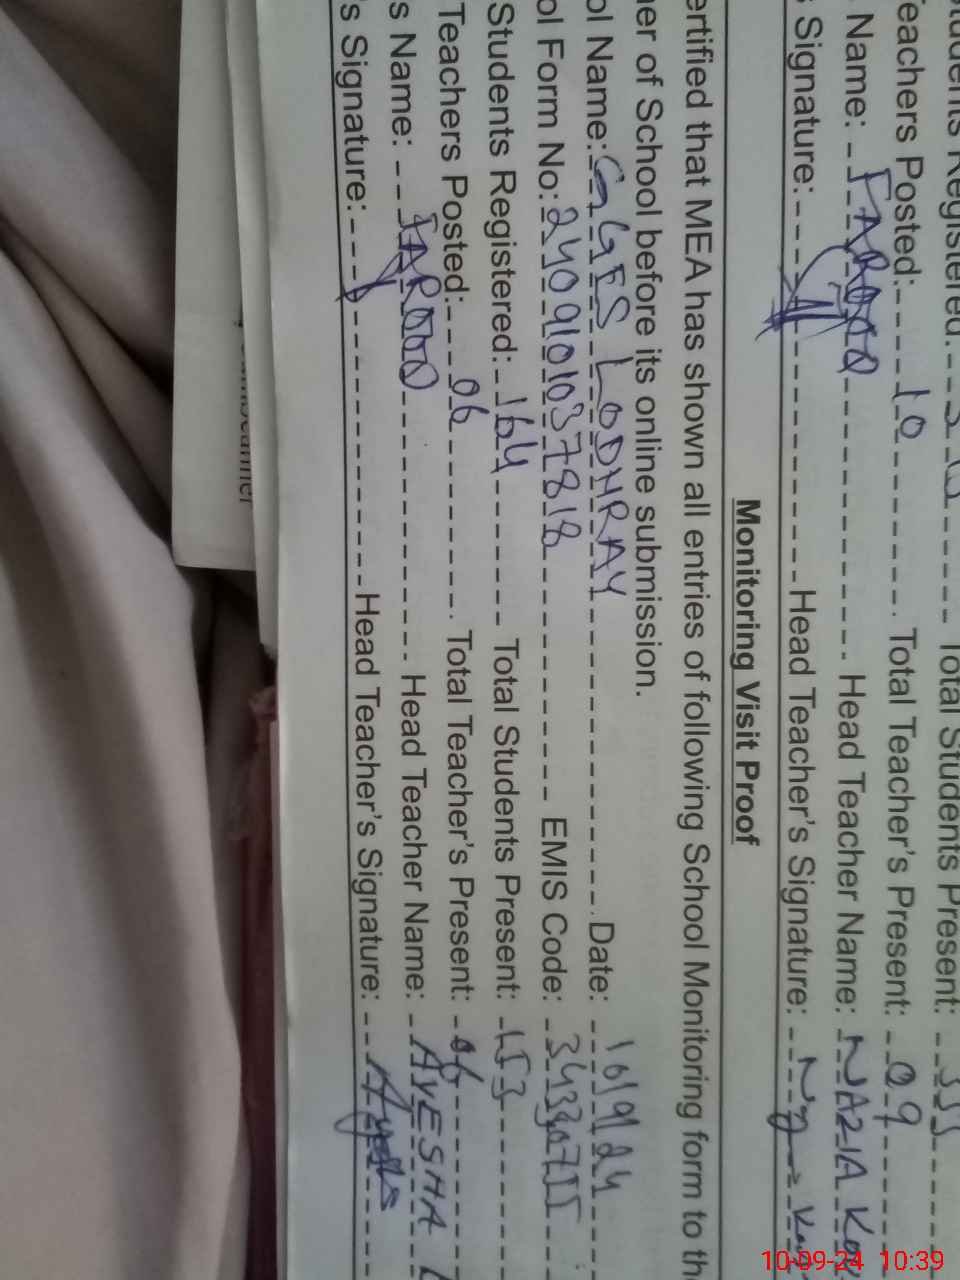 Students Registered: Total Students Present:
Teachers Posted: 10 Total Teacher's Present: 09
Name: FAROOQ Head Teacher Name: NAZIA
Signature: Head Teacher's Signature:
Monitoring Visit Proof
ertified that MEA has shown all entries of following School Monitoring form to th
er of School before its online submission.
ol Name: GGES LODHRAY Date: 10/9/24
ol Form No: 2409101037818 EMIS Code:
Students Registered: 164 Total Students Present: 153
Teachers Posted: 06 Total Teacher's Present: 06
s Name: FAROOQ Head Teacher Name: AYESHA
's Signature: Head Teacher's Signature: Ayesha
10-09-24 10:39